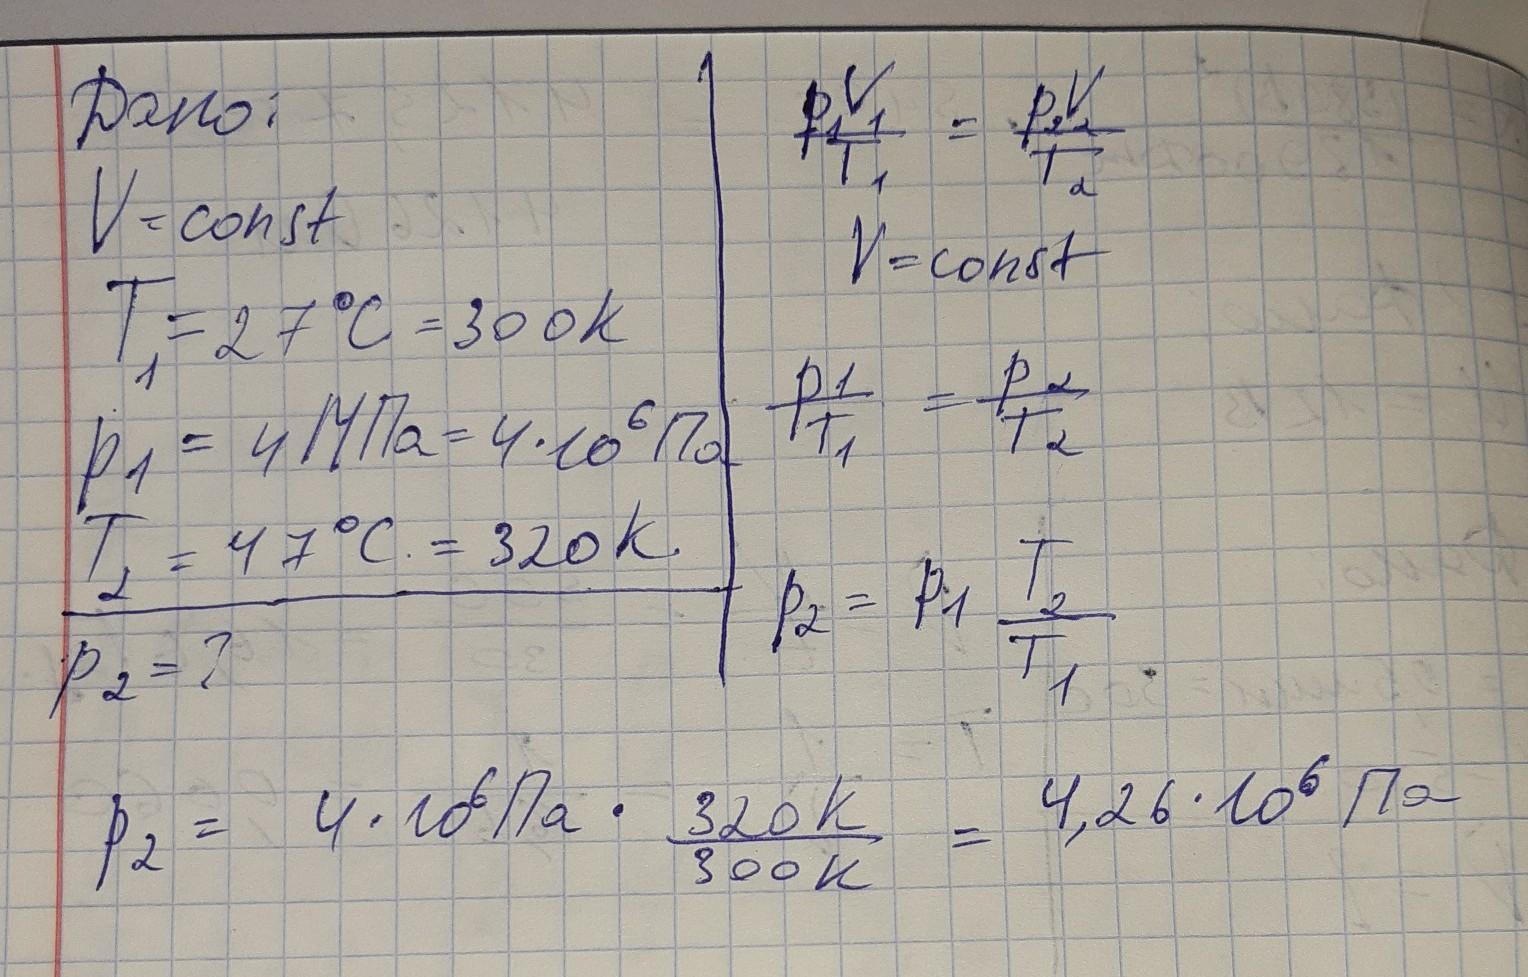 Дано:
V = const
T₁ = 27°C = 300K
p₁ = 4 МПа = 4·10⁶ Па
T₂ = 47°C. = 320K
p₂ = ?
p₁V₁/T₁ = p₂V₂/T₂
V = const
p₁/T₁ = p₂/T₂
p₂ = p₁ T₂/T₁
p₂ = 4·10⁶ Па · 320K/300K = 4,26·10⁶ Па